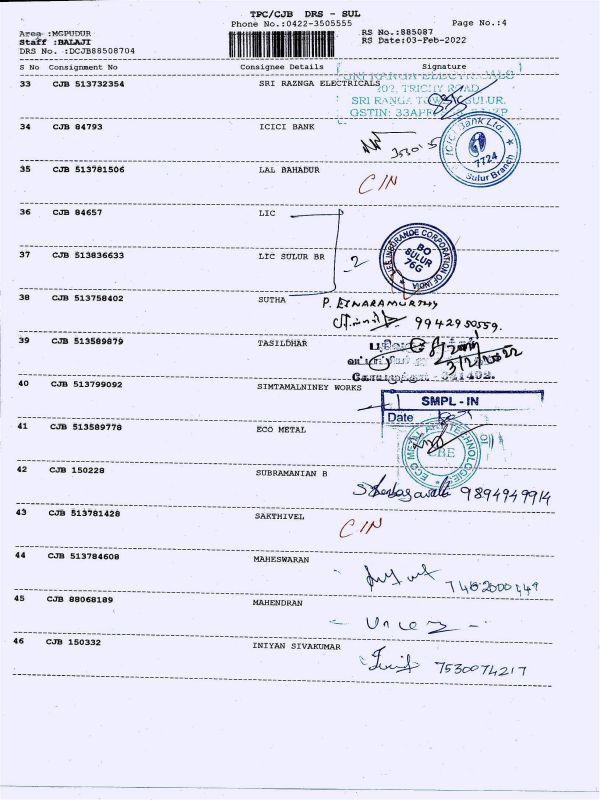 TPC/CJB DRS - SUL
Phone No.:0422-3505555 Page No.:4
Area :MGPUDUR RS No.:885087
Staff :BALAJI RS Date:03-Feb-2022
DRS No. :DCJB88508704
S No Consignment No Consignee Details Signature
SRI RANGA ELECTRICALS
33 CJB 513732354 SRI RAZNGA ELECTRICALS
102, TRICHY ROAD
SRI RANGA SULUR.
GSTIN: 33
34 CJB 84793 ICICI BANK
ICICI Bank Ltd.
7724
Sulur Branch
35 CJB 513781506 LAL BAHADUR
CIN
36 CJB 84657 LIC
LIFE INSURANCE CORPORATION OF INDIA
BO
SULUR
76G
37 CJB 513836633 LIC SULUR BR
2
38 CJB 513758402 SUTHA
9942950559.
39 CJB 513589879 TASILDHAR
3/2/2022
40 CJB 513799092 SIMTAMALNINEY WORKS
SMPL - IN
Date
41 CJB 513589778 ECO METAL
ECO METAL
CBE
42 CJB 150228 SUBRAMANIAN B
9894949914
43 CJB 513781428 SAKTHIVEL
CIN
44 CJB 513784608 MAHESWARAN
45 CJB 88068189 MAHENDRAN
46 CJB 150332 INIYAN SIVAKUMAR
7530074217